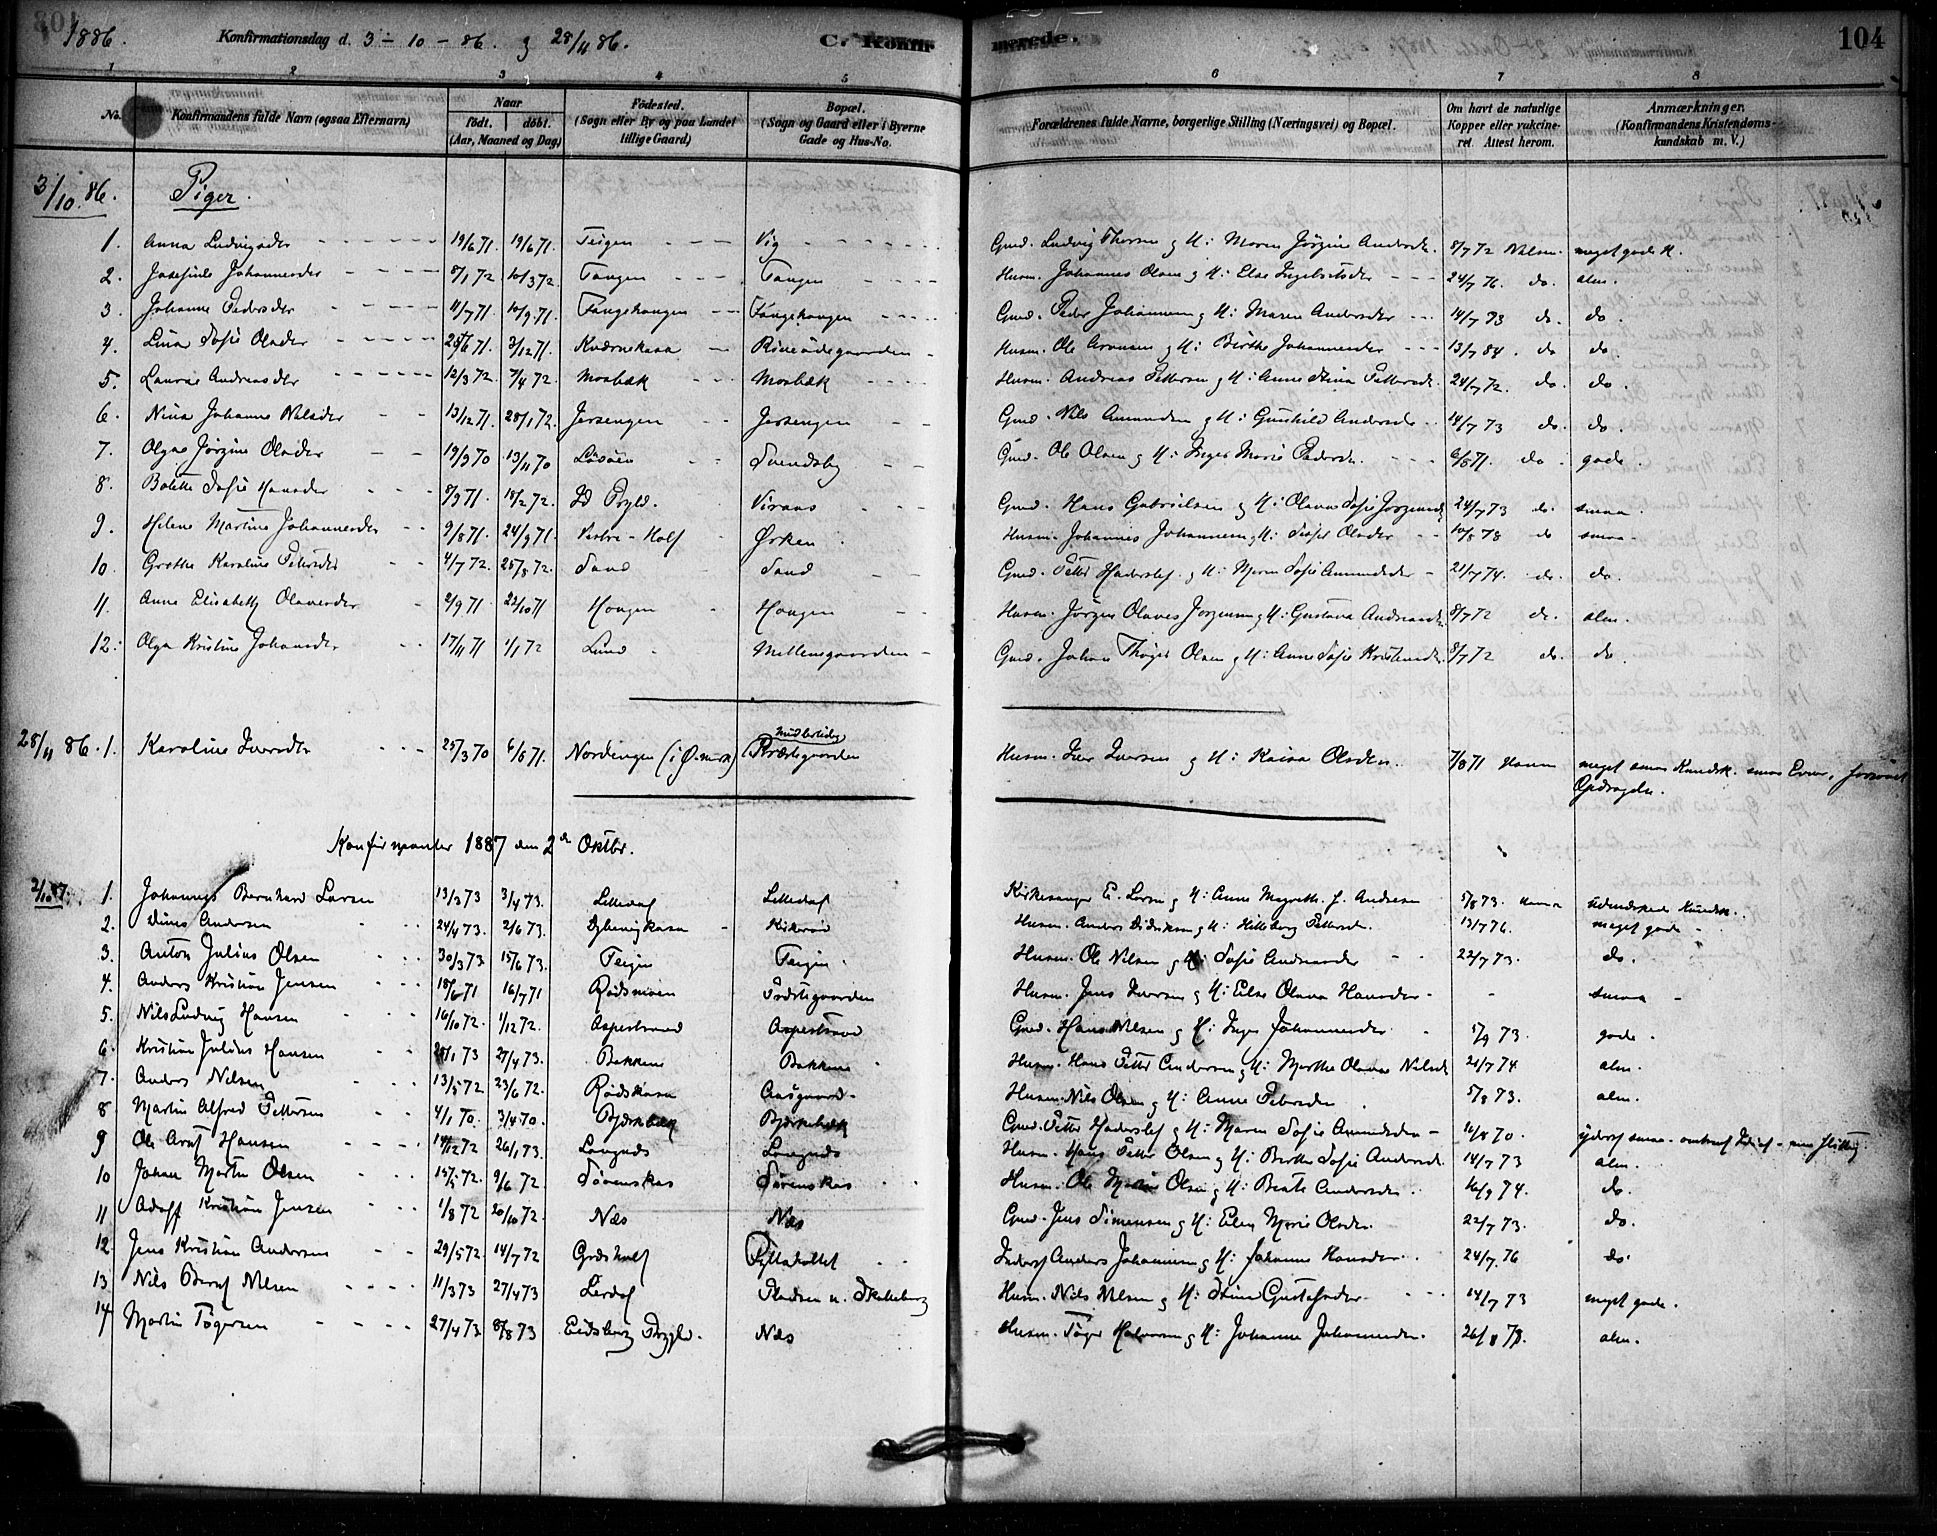 1886. Konfirmationsdag d. 3 - 10 - 86. g 28/11 86. C. Konfir merede. 104
1 2 3 4 5 6 7 8
No. Konfirmandens fulde Navn (ogsaa Efternavn) Naar født. døbt. (Aar, Maaned og Dag) Fødested. (Sogn eller By og paa Landet tillige Gaard) Bopæl. (Sogn og Gaard eller i Byerne Gade og Hus-No. Forældrenes fulde Navne, borgerlige Stilling (Næringsvei) og Bopæl. Om havt de naturlige Kopper eller vakcineret. Attest herom. Anmærkninger. (Konfirmandens Kristendomskundskab m. V.)
3/10 86. Piger.
1. Anna Ludvigsdtr 19/6 71. 19/6 71. Teigen Vig Gmd. Ludvig Thorsen g H: Maren Jørgine Andersdtr. 8/7 72 Nilsen. meget gode K.
2. Josefine Johannesdtr 8/1 72 10/3 72. Tangen Tangen Husm. Johannes Olsen g H: Else Ingebretsdtr 24/7 76. do. alm.
3. Johanne Pedersdtr 11/7 71. 10/9 71. Fangehaugen Fangehaugen Gmd. Peder Johannesen g H: Maren Andersdtr 14/7 73 do. do.
4. Lina Sofie Olsdtr 25/6 71. 3/12 71. Kværnekasa Riisødegaarden Husm. Ole Aronsen g H: Birthe Johannesdtr 13/7 84. do do.
5. Laura Andreasdtr 12/3 72. 7/4 72. Mosbæk Mosbæk Husm. Andreas Pettersen g H: Anne Stina Pettersdtr 24/7 72. do. do.
6. Nina Johanne Nilsdtr 13/12 71. 28/1 72. Jarsengen Jarsengen Gmd. Nils Amundsen g H: Gunhild Andersdtr 14/7 73 do. do.
7. Olga Jørgine Olsdtr 19/9 70 13/11 70 Løsøen Svendsby Gmd. Ole Olsen g H: Inger Marie Pedersdtr. 6/8 71. do gode.
8. Bolette Sofie Hansdtr 8/9 71. 18/2 72. Id Prgld. Viraas Gmd. Hans Gabrielsen g H: Olava Sofie Jørgensdtr 24/7 73 do. smaa.
9. Helene Martine Johannesdtr 9/8 71. 24/9 71. Vestre-Holt Ørken Husm. Johannes Johannesen g H: Sofie Olsdtr 10/8 78 do smaa.
10. Grethe Karoline Pettersdtr 4/7 72. 25/8 72. Sand Sand Gmd. Petter Haderslef. g H: Maren Sofie Amundsdtr 21/7 74. do. do.
11. Anna Elisabeth Olavesdtr 2/9 71. 22/10 71 Haugen Haugen Husm. Jørgen Olaves Jørgensen g H: Gustava Andreasdtr. 8/7 72 do. alm.
12. Olga Kristine Johansdtr 17/11 71 1/1 72 Lund Mellemgaarden Gmd. Johan Thøger Olsen g H: Anne Sofie Kristensdtr 8/7 72 do. do.
28/11 86. 1. Karoline Iversdtr 25/3 70 6/8 71. Nordengen (i Ø.mark) midlertidig Præstegaarden Husm. Iver Iversen g H: Kaisa Olsdtr. 7/8 71 Hansen meget smaa Kundsk. smaa Evner, forsømt Opdragelse.
Konfirmanter 1887 den 2den Oktbr.
2/10 87. 1. Johannes Bernhard Larsen 13/3 73 3/4 73. Lilledal Lilledal Kirkesanger E. Larsen g H: Anne Magrethe f. Andresen 5/8 73. Hansen udmærkede Kundsk..
2. Andersen 24/4 73. 2/6 73. Kirkerød Husm. Anders Didriksen g H: Pettersdtr. 13/7 76. meget gode
3. Anton Julius Olsen 30/3 73 15/6 73. Teigen Teigen. Husm. Ole Nilsen g H: Sofie Andreasdtr 22/7 73. do.
4. Anders Kristian Jensen 18/6 71 16/7 71 Rødsmoen Præstegaarden Husm. Jens Iversen g H: Else Olava Hansdtr - - smaa
5. Nils Ludvig Hansen 16/10 72. 1/12 72. Aspestrand Aspestrand Gmd. Hans Nilsen g H: Inger Johannesdtr 5/9 73. gode.
6. Kristian Julius Hansen 28/1 73 27/4 73. Bakken Bakken Husm. Hans Petter Andersen g H: Marthe Olava Nilsdtr 21/7 74 alm.
7. Anders Nilsen 13/5 72 23/6 72. Rødskasa Aasgaard Husm. Nils Olsen g H: Anne Pedersdtr 5/8 73. alm.
8 Martin Alfred Pettersen 4/1 70. 3/4 70. Bjerkebæk Bjerkebæk Gmd. Petter Haderslef g H: Maren Sofie Amundsdtr 10/8 70. yderst smaa
9 Ole Arnt Hansen 14/12 72 26/1 73. Langnæs Langnæs Husm. Hans Petter Olsen g H: Berthe Sofie Andersdtr. 14/7 73 alm.
10 Johan Martin Olsen 15/5 72. 9/6 72. Sørenskas Sørenskas Husm. Ole Martin Olsen g H: Beate Andersdtr. 16/9 74. do.
11 Adolf Kristian Jensen 1/8 72 20/10 72. Næs Næs Gmd. Jens Simensen g H: Elen Marie Olsdtr. 22/7 73. do.
12. Jens Kristian Andersen 29/5 72. 14/7 72 Græsholt Inderst Anders Johannesen g H: Johanne Hansdtr 24/7 76 do.
13 Nils Bernt Nilsen 11/3 73 27/4 73 Lerdal Pladsen u. Skalleberg Husm. Nils Nilsen g H: Stina Gustafsdtr 14/7 73 meget gode.
14 Martin Tøgersen 27/4 73. 8/8 73 Eidsberg Prgld. Næs Husm. Tøger Halvorsen g H: Johanne Johannesdtr. 26/8 78. alm.